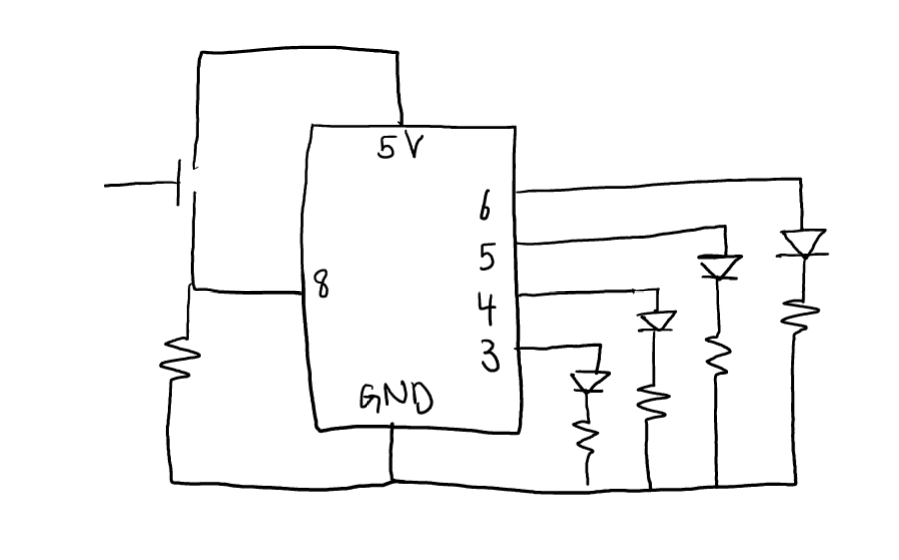 5V
6
5
8
4
3
GND